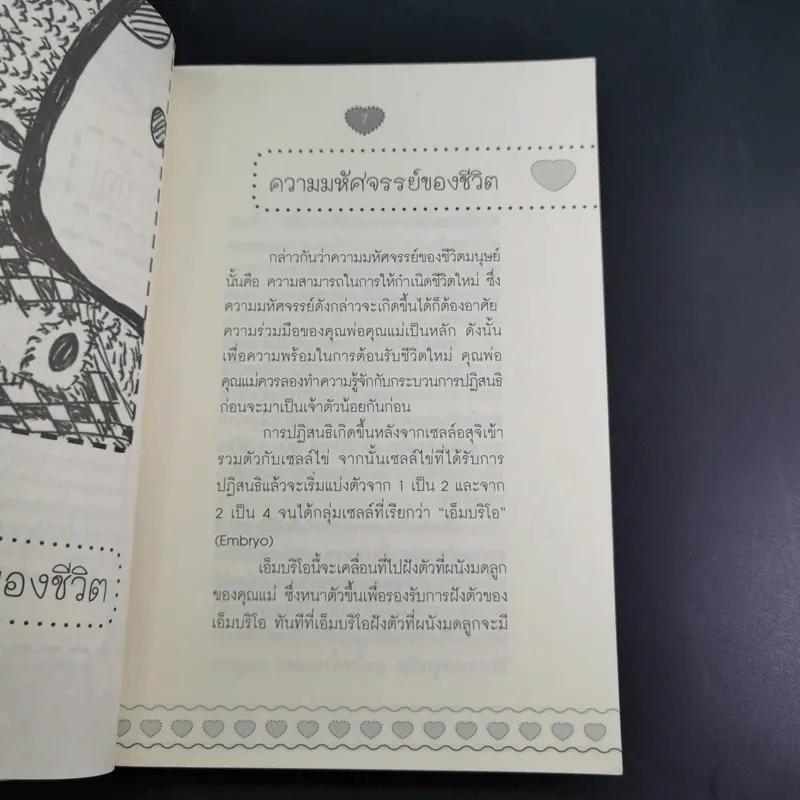 7
ความมหัศจรรย์ของชีวิต
กล่าวกันว่าความมหัศจรรย์ของชีวิตมนุษย์
นั้นคือ ความสามารถในการให้กำเนิดชีวิตใหม่ ซึ่ง
ความมหัศจรรย์ดังกล่าวจะเกิดขึ้นได้ก็ต้องอาศัย
ความร่วมมือของคุณพ่อคุณแม่เป็นหลัก ดังนั้น
เพื่อความพร้อมในการต้อนรับชีวิตใหม่ คุณพ่อ
คุณแม่ควรลองทำความรู้จักกับกระบวนการปฏิสนธิ
ก่อนจะมาเป็นเจ้าตัวน้อยกันก่อน
การปฏิสนธิเกิดขึ้นหลังจากเซลล์อสุจิเข้า
รวมตัวกับเซลล์ไข่ จากนั้นเซลล์ไข่ที่ได้รับการ
ปฏิสนธิแล้วจะเริ่มแบ่งตัวจาก 1 เป็น 2 และจาก
2 เป็น 4 จนได้กลุ่มเซลล์ที่เรียกว่า “เอ็มบริโอ”
(Embryo)
เอ็มบริโอนี้จะเคลื่อนที่ไปฝังตัวที่ผนังมดลูก
ของคุณแม่ ซึ่งหนาตัวขึ้นเพื่อรองรับการฝังตัวของ
เอ็มบริโอ ทันทีที่เอ็มบริโอฝังตัวที่ผนังมดลูกจะมี
ของชีวิต